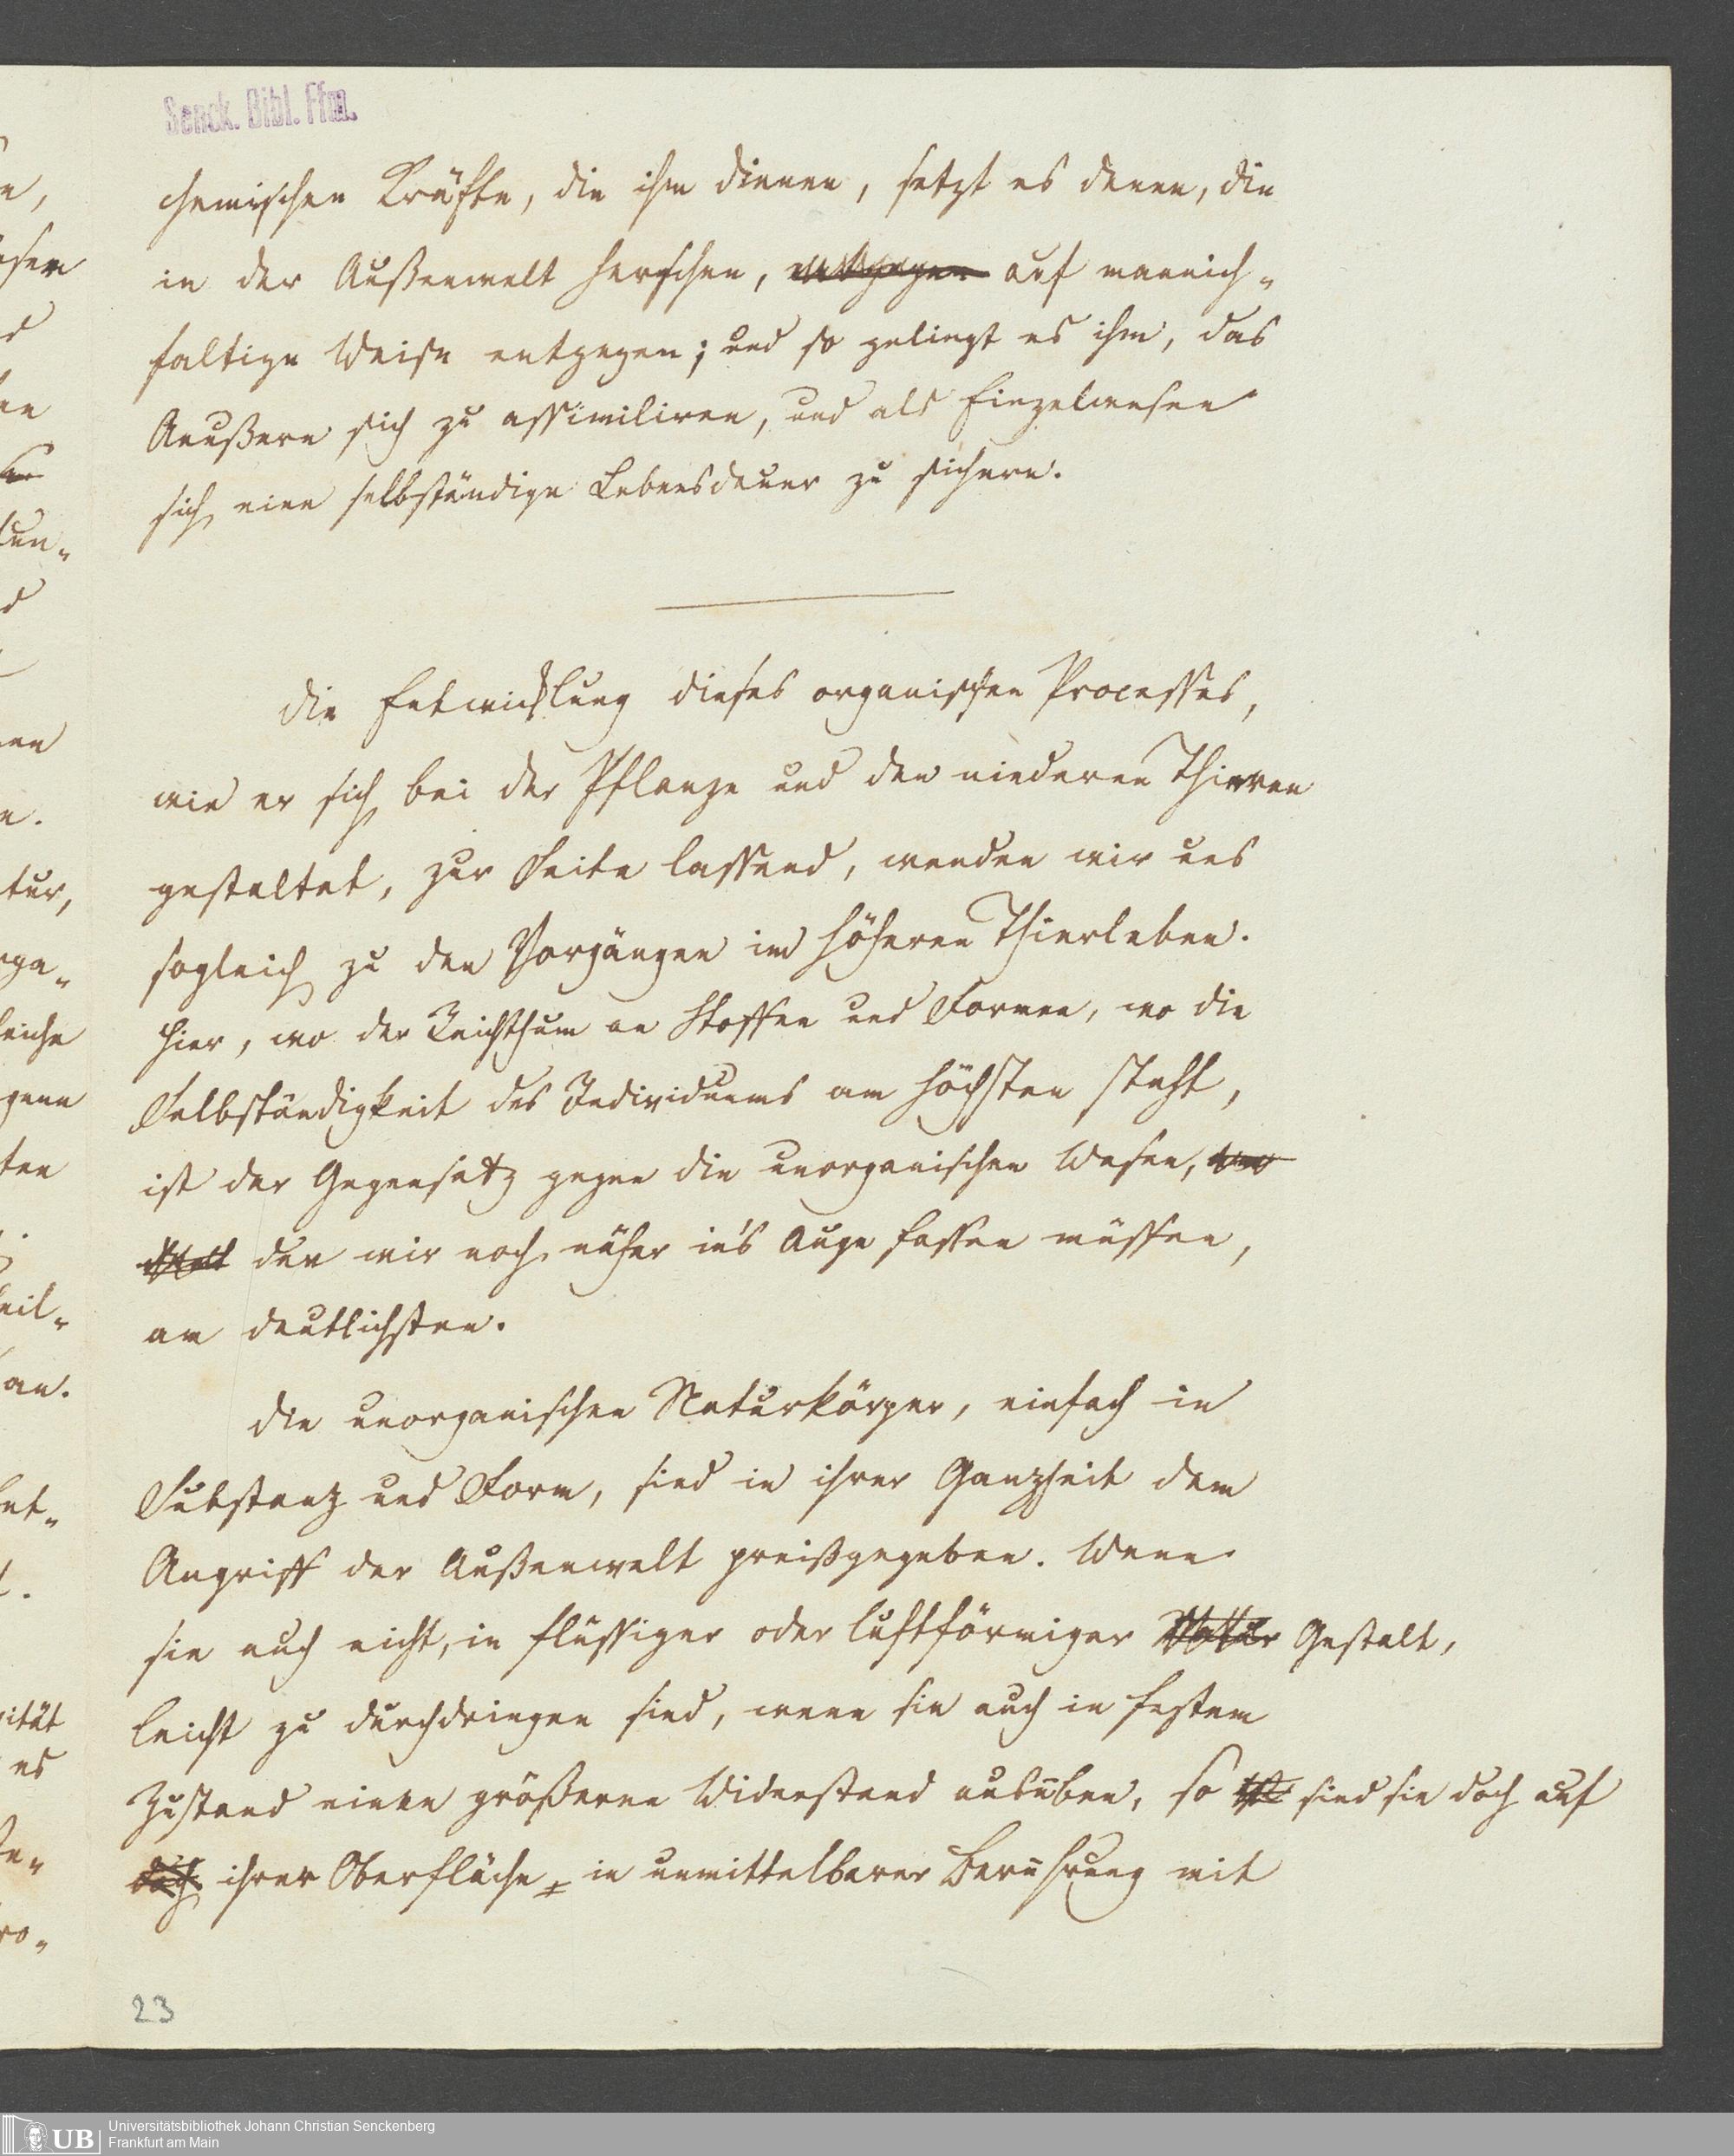 Senck. Bibl. Ffm.
chemischen Kräfte, die ihm dienen, setzt es denen, die
in der Außenwelt herrschen, entgegen auf mannich-
faltige Weise entgegen; und so gelingt es ihm, das
Aeußere sich zu assimiliren, und als Einzelwesen
sich eine selbständige Lebensdauer zu sichern.
Die Entwicklung dieses organischen Processes,
wie er sich bei der Pflanze und den niederen Thieren
gestaltet, zur Seite lassend, wenden wir uns
sogleich zu den Vorgängen im höheren Thierleben.
Hier, wo der Reichthum an Stoffen und Formen, wo die
Selbständigkeit des Individuums am höchsten steht,
ist der Gegensatz gegen die unorganischen Wesen,
den wir noch näher in's Auge fassen müssen,
am deutlichsten.
Die unorganischen Naturkörper, einfach in
Substanz und Form, sind in ihrer Ganzheit dem
Angriff der Außenwelt preißgegeben. Wenn
sie auch nicht, in flüssiger oder luftförmiger Gestalt,
leicht zu durchdringen sind, wenn sie auch in festem
Zustand einen größeren Widerstand ausüben, so ist sind sie doch auf
doch ihrer Oberfläche in unmittelbarer Berührung mit
23
n,
d
d
n.
tur,
rga-
leiche
gene
ten
eil-
an.
nt-
t.
ität
es
ro-
UB
Universitätsbibliothek Johann Christian Senckenberg
Frankfurt am Main